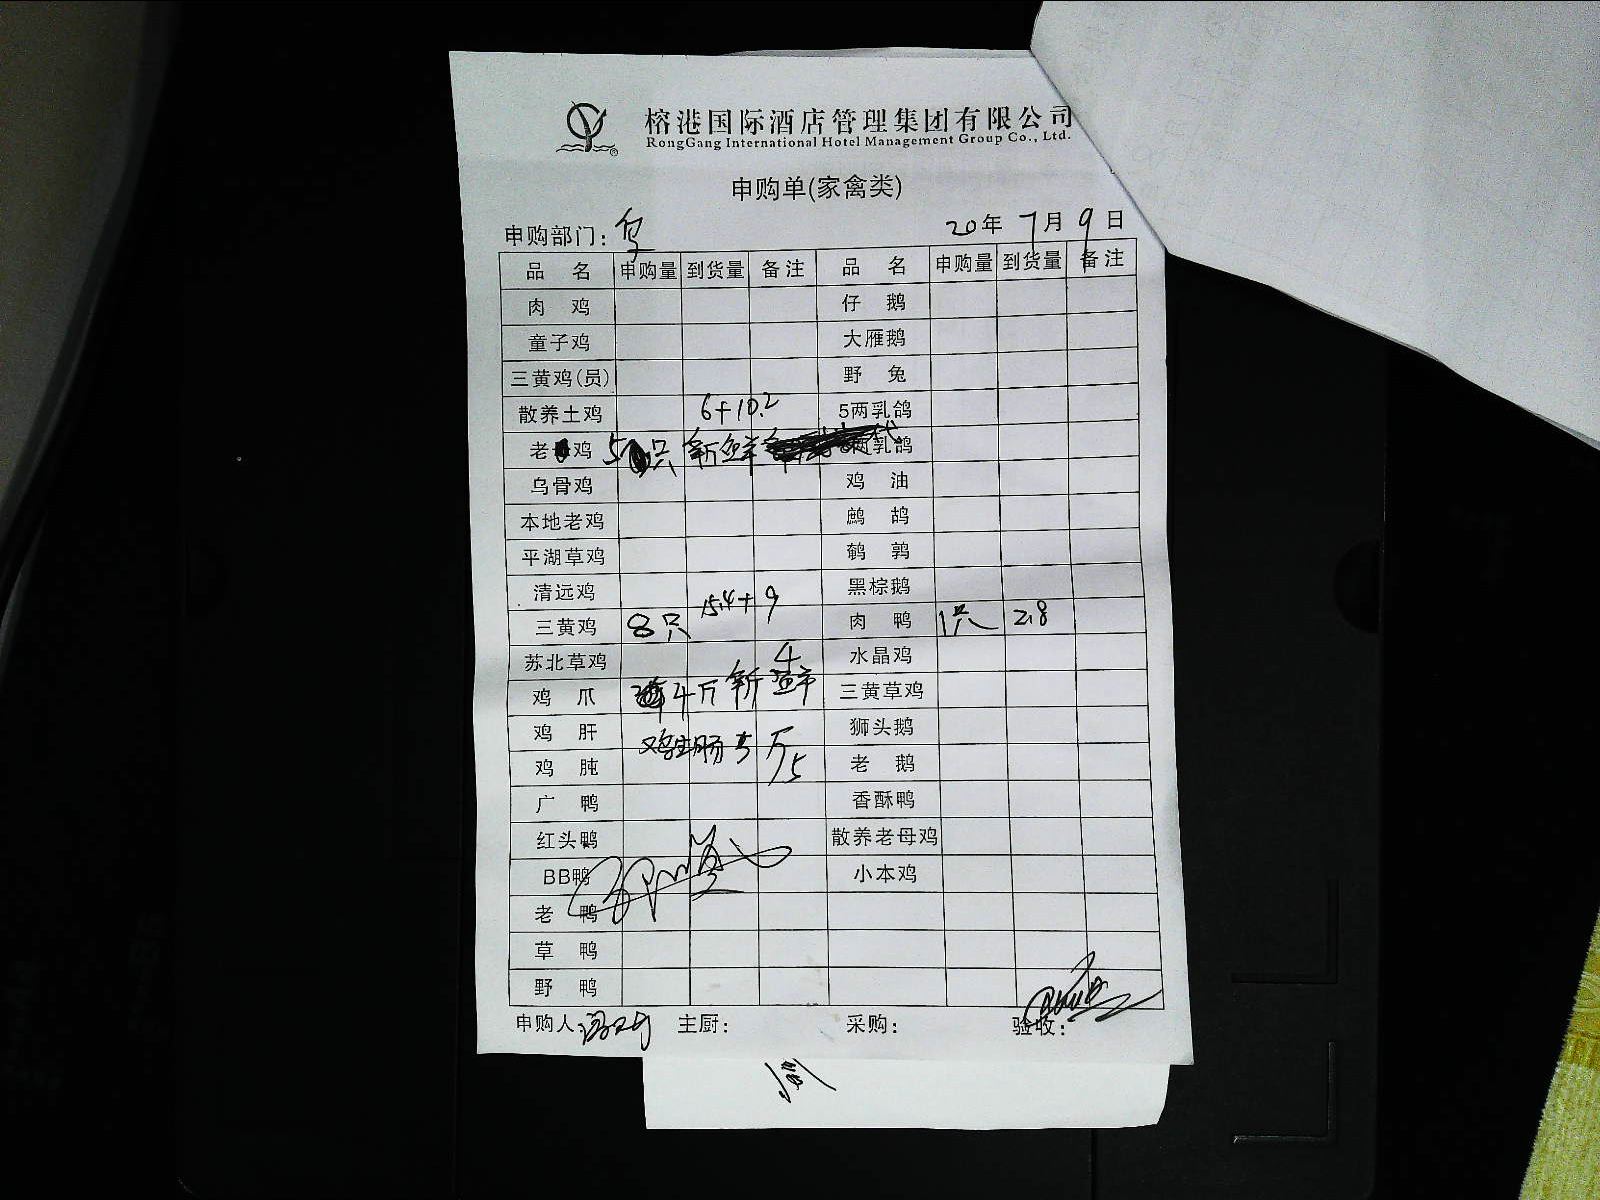 榕港国际酒店管理集团有限公司
RongGang International Hotel Management Group Co., Ltd.
申购单(家禽类)
申购部门： 20年 7月 9日
品 名 申购量 到货量 备注 品 名 申购量 到货量 备注
肉 鸡 仔 鹅
童子鸡 大雁鹅
三黄鸡(员) 野 兔
散养土鸡 6+10.2 5两乳鸽
老 鸡 5只 新鲜 两乳鸽
乌骨鸡 鸡 油
本地老鸡 鹧 鸪
平湖草鸡 鹌 鹑
清远鸡 黑棕鹅
三黄鸡 8只 15.4+9 肉 鸭 1只 2.8
苏北草鸡 4 水晶鸡
鸡 爪 4斤新鲜 三黄草鸡
鸡 肝 鸡生肠5斤 狮头鹅
鸡 肫 5 老 鹅
广 鸭 香酥鸭
红头鸭 散养老母鸡
BB鸭 小本鸡
老 鸭
草 鸭
野 鸭
申购人： 主厨： 采购： 验收：